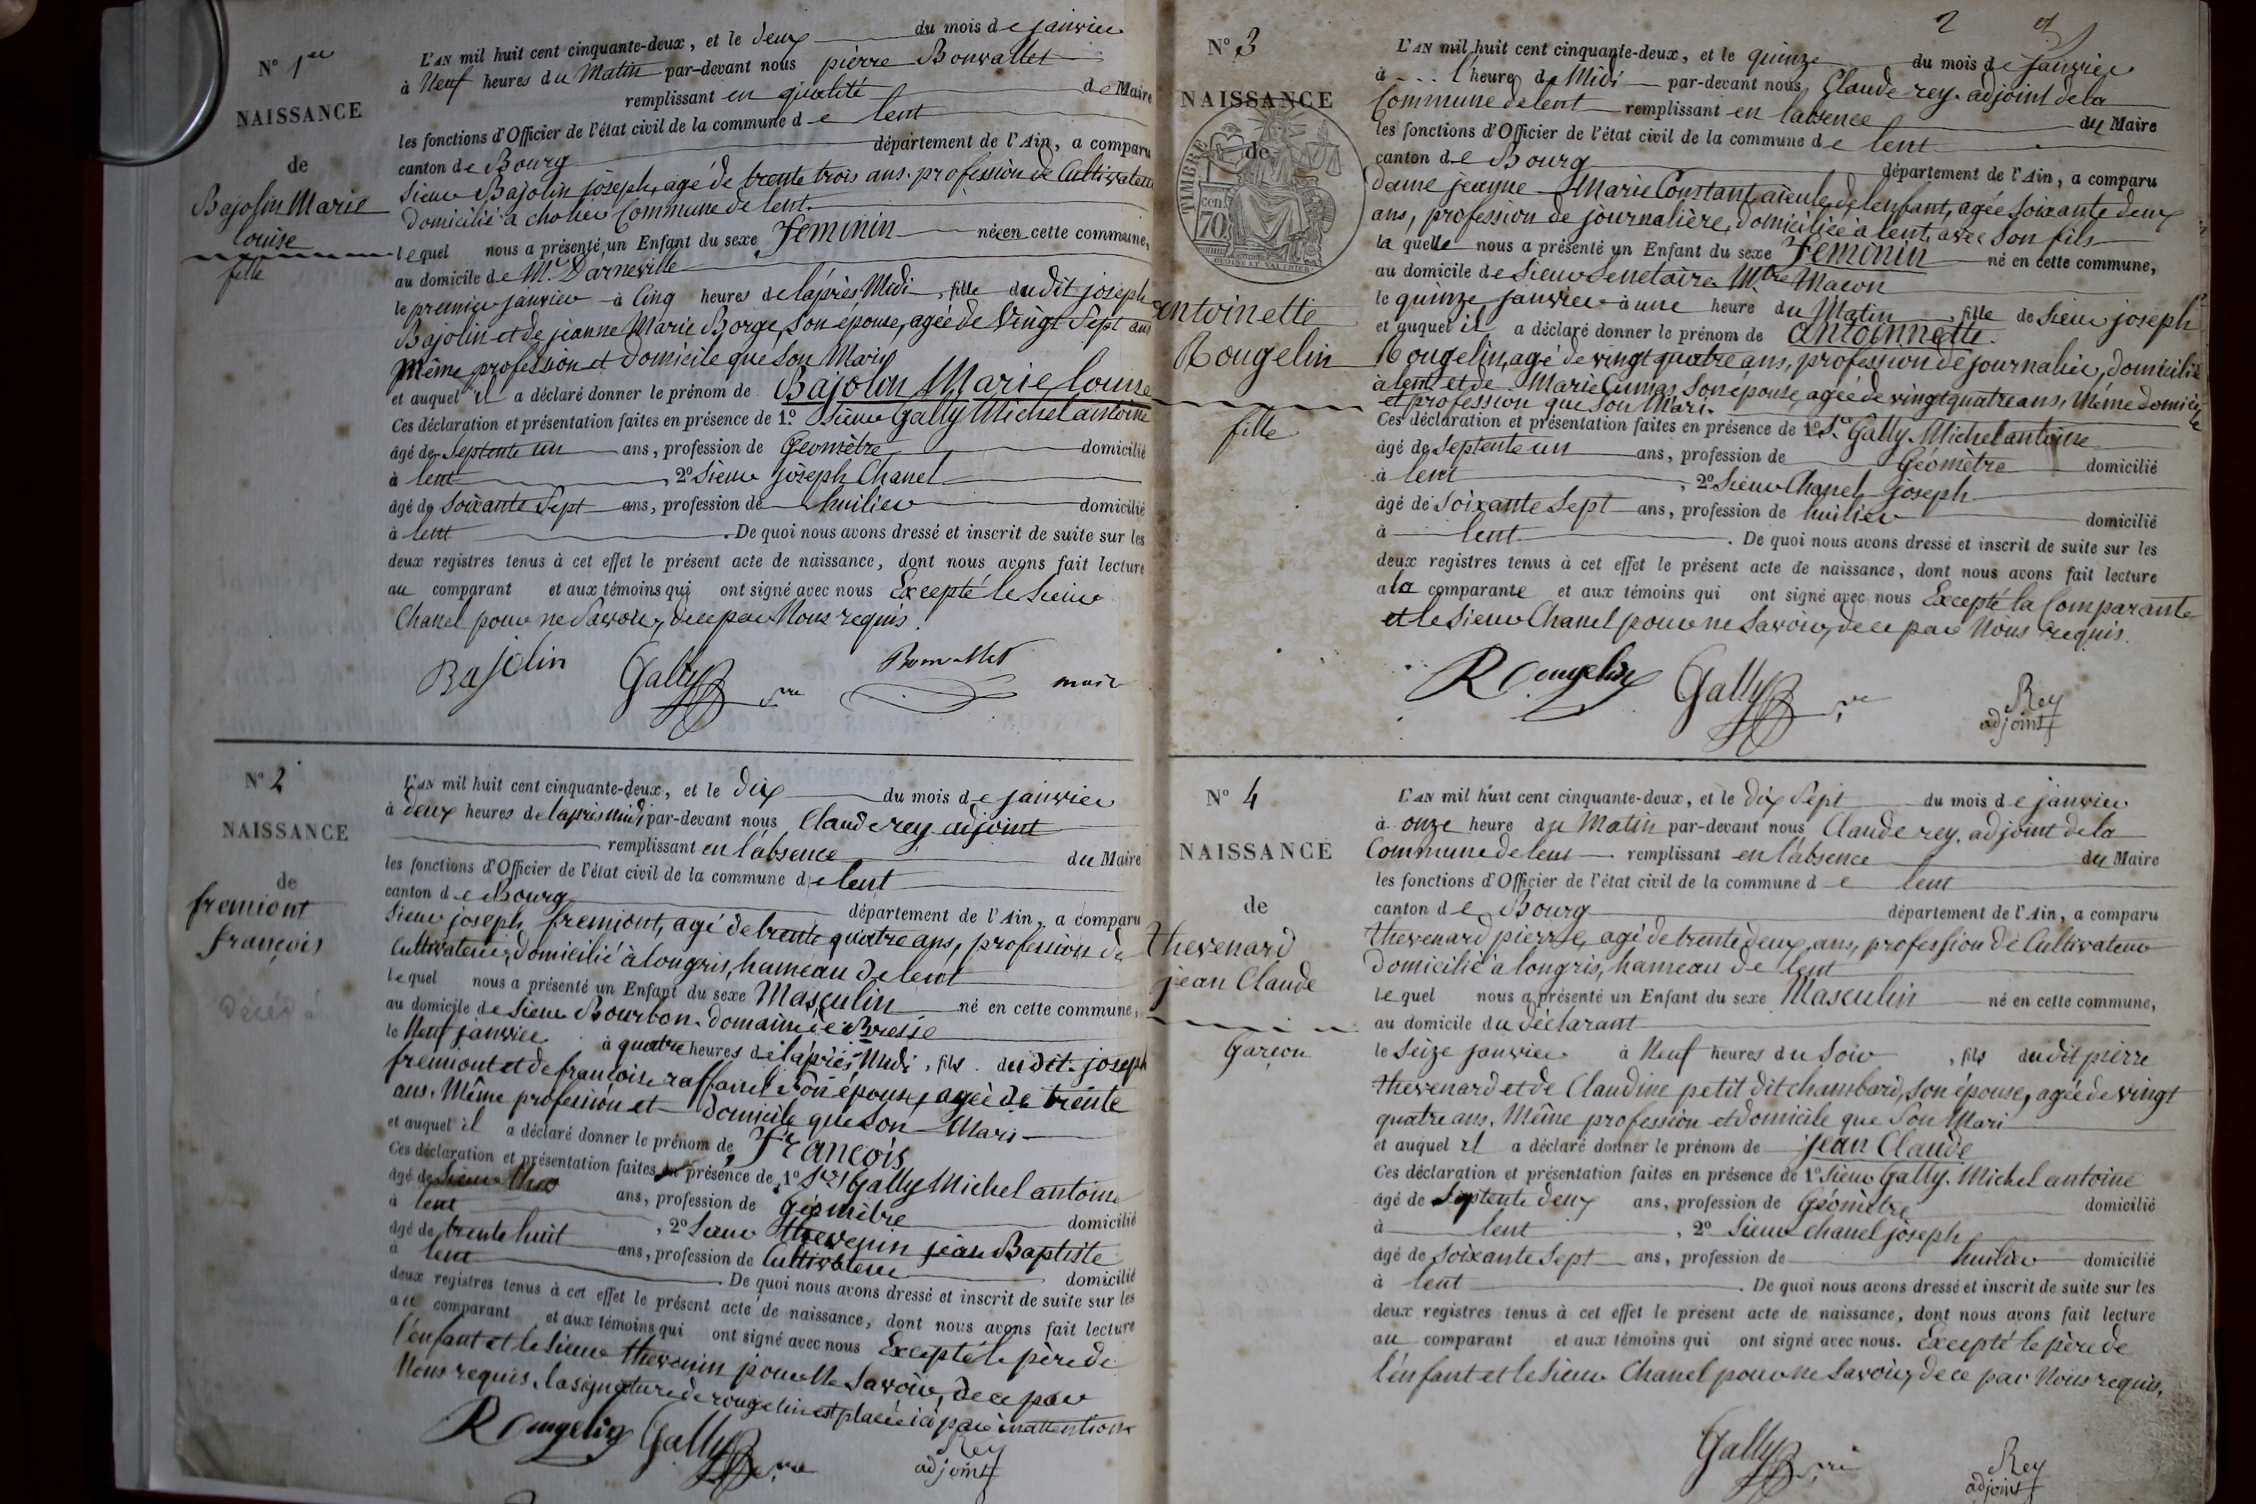 N° 1er
NAISSANCE
de
Bajolin Marie
louise
fille
L'AN mil huit cent cinquante-deux, et le deux du mois de janvier
à Neuf heures du Matin par-devant nous pierre Bonvallet
remplissant en qualité de Maire
les fonctions d'Officier de l'état civil de la commune de lent
canton de Bourg département de l'Ain, a comparu
Sieur Bajolin joseph, agé de trente trois ans, profession de Cultivateur
Domicilié à cholier Commune de lent
lequel nous a présenté un Enfant du sexe Feminin née en cette commune,
au domicile de Mr Darneville
le premier janvier à Cinq heures de l'après Midi, fille du dit joseph
Bajolin et de jeanne Marie Borge, Son épouse, agée de Vingt Sept ans
Même profession et Domicile que Son Mari
et auquel il a déclaré donner le prénom de Bajolin Marie louise
Ces déclaration et présentation faites en présence de 1° Sieur Gally Michel antoine
âgé de Septente un ans, profession de Géomètre domicilié
à lent , 2° Sieur joseph Chanel
âgé de Soixante Sept ans, profession de huilier domicilié
à lent . De quoi nous avons dressé et inscrit de suite sur les
deux registres tenus à cet effet le présent acte de naissance, dont nous avons fait lecture
au comparant et aux témoins qui ont signé avec nous Excepté le Sieur
Chanel pour ne Savoir, de ce par Nous requis.
Bajolin Gally Bonvallet maire
N° 2
NAISSANCE
de
fremiont
françois
Décédé
L'AN mil huit cent cinquante-deux, et le Dix du mois de janvier
à deux heures de l'après midi par-devant nous Claude rey adjoint
remplissant en l'absence du Maire
les fonctions d'Officier de l'état civil de la commune de lent
canton de Bourg département de l'Ain, a comparu
Sieur joseph fremiont, agé de trente quatre ans, profession de
Cultivateur, Domicilié à longris, hameau de lent
lequel nous a présenté un Enfant du sexe Masculin né en cette commune,
au domicile de Sieur Bourbon. domaine de Bresse
le Neuf janvier à quatre heures de l'après Midi, fils du dit joseph
fremiont et de francoise raffanel Son épouse, agée de trente
ans. Même profession et Domicile que Son Mari
et auquel il a déclaré donner le prénom de François
Ces déclaration et présentation faites en présence de 1° Sr Gally Michel antoine
âgé de ans, profession de Géomètre domicilié
à lent , 2° Sieur thevenin jean Baptiste
âgé de trente huit ans, profession de Cultivateur domicilié
à lent . De quoi nous avons dressé et inscrit de suite sur les
deux registres tenus à cet effet le présent acte de naissance, dont nous avons fait lecture
au comparant et aux témoins qui ont signé avec nous Excepté le père de
l'enfant et le Sieur thevenin pour Ne Savoir, de ce par
Nous requis. la signature de rougelin est placée ici par inattention
Rougelin Gally Rey
adjoint
2
N° 3
NAISSANCE
de
TIMBRE
70 cen.
antoinette
Rougelin
fille
L'AN mil huit cent cinquante-deux, et le quinze du mois de janvier
à l'heure de Midi par-devant nous Claude rey. adjoint de la
Commune de lent remplissant en l'absence du Maire
les fonctions d'Officier de l'état civil de la commune de lent
canton de Bourg département de l'Ain, a comparu
dame jeanne Marie Constant, aïeule de l'enfant, agée Soixante deux
ans, profession de journalière, domiciliée à lent, avec Son fils
laquelle nous a présenté un Enfant du sexe Feminin né en cette commune,
au domicile de Sieur Macon
le quinze janvier à une heure du Matin, fille de Sieur joseph
et auquel il a déclaré donner le prénom de antoinnette.
Rougelin, agé de vingt quatre ans, profession de journalier, domicilié
à lent et de Marie Son épouse, agée de vingt quatre ans, Même domicile
et profession que Son Mari.
Ces déclaration et présentation faites en présence de 1° Sr Gally Michel antoine
âgé de Septente un ans, profession de Géomètre domicilié
à lent , 2° Sieur Chanel joseph
âgé de Soixante Sept ans, profession de huilier domicilié
à lent . De quoi nous avons dressé et inscrit de suite sur les
deux registres tenus à cet effet le présent acte de naissance, dont nous avons fait lecture
a la comparante et aux témoins qui ont signé avec nous Excepté la Comparante
et le Sieur Chanel pour ne Savoir, de ce par Nous requis.
Rougelin Gally Rey
adjoint
N° 4
NAISSANCE
de
thevenard
jean Claude
Garcon
L'AN mil huit cent cinquante-deux, et le Dix Sept du mois de janvier
à onze heure du Matin par-devant nous Claude rey. adjoint de la
Commune de lent remplissant en l'absence du Maire
les fonctions d'Officier de l'état civil de la commune de lent
canton de Bourg département de l'Ain, a comparu
thevenard pierre, agé de trente deux, ans, profession de Cultivateur
Domicilié à longris, hameau de lent
lequel nous a présenté un Enfant du sexe Masculin né en cette commune,
au domicile du déclarant
le Seize janvier à Neuf heures du Soir, fils du dit pierre
thevenard et de Claudine petit dit chambard, Son épouse, agée de vingt
quatre ans. Même profession et domicile que Son Mari
et auquel il a déclaré donner le prénom de jean Claude
Ces déclaration et présentation faites en présence de 1° Sieur Gally. Michel antoine
âgé de Septente deux ans, profession de Géomètre domicilié
à lent , 2° Sieur chanel joseph
âgé de Soixante Sept ans, profession de huilier domicilié
à lent . De quoi nous avons dressé et inscrit de suite sur les
deux registres tenus à cet effet le présent acte de naissance, dont nous avons fait lecture
au comparant et aux témoins qui ont signé avec nous. Excepté le père de
l'enfant et le Sieur Chanel pour ne Savoir, de ce par Nous requis.
Gally Rey
adjoint